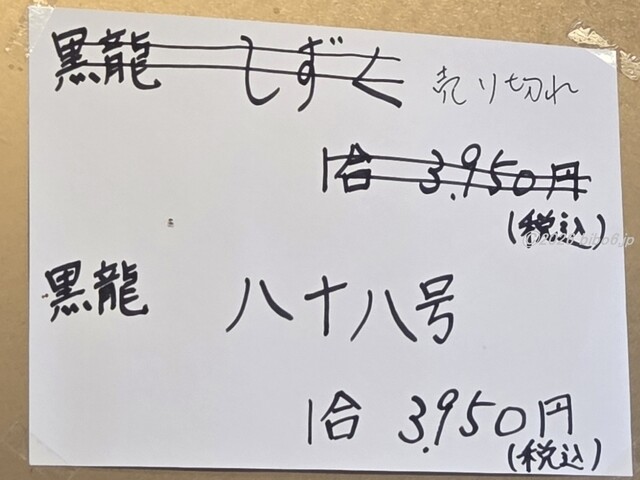 黒龍 しずく 売り切れ
1合 3.950円
(税込)
黒龍 八十八号
1合 3.950円
(税込)